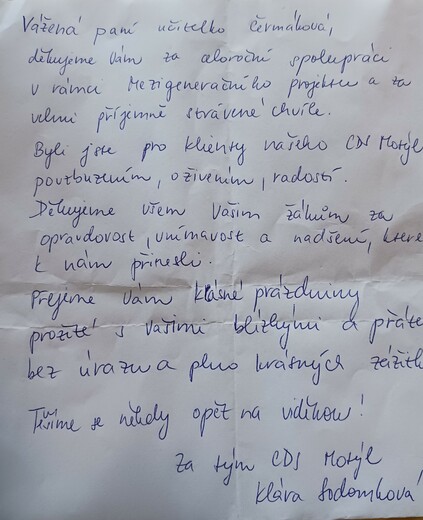 Vážená paní učitelko Čermáková,
děkujeme Vám za celoroční spolupráci
v rámci Mezigeneračního projektu a za
velmi příjemně strávené chvíle.
Byli jste pro klienty našeho CDS Motýl
povzbuzením, oživením, radostí.
Děkujeme všem Vašim žákům za
opravdovost, vnímavost a nadšení, které
k nám přinesli.
Přejeme Vám krásné prázdniny
prožité s Vašimi blízkými a přáte
bez úrazu a plno krásných zážitk
Těšíme se někdy opět na viděnou!
Za tým CDS Motýl
Klára Sodomková